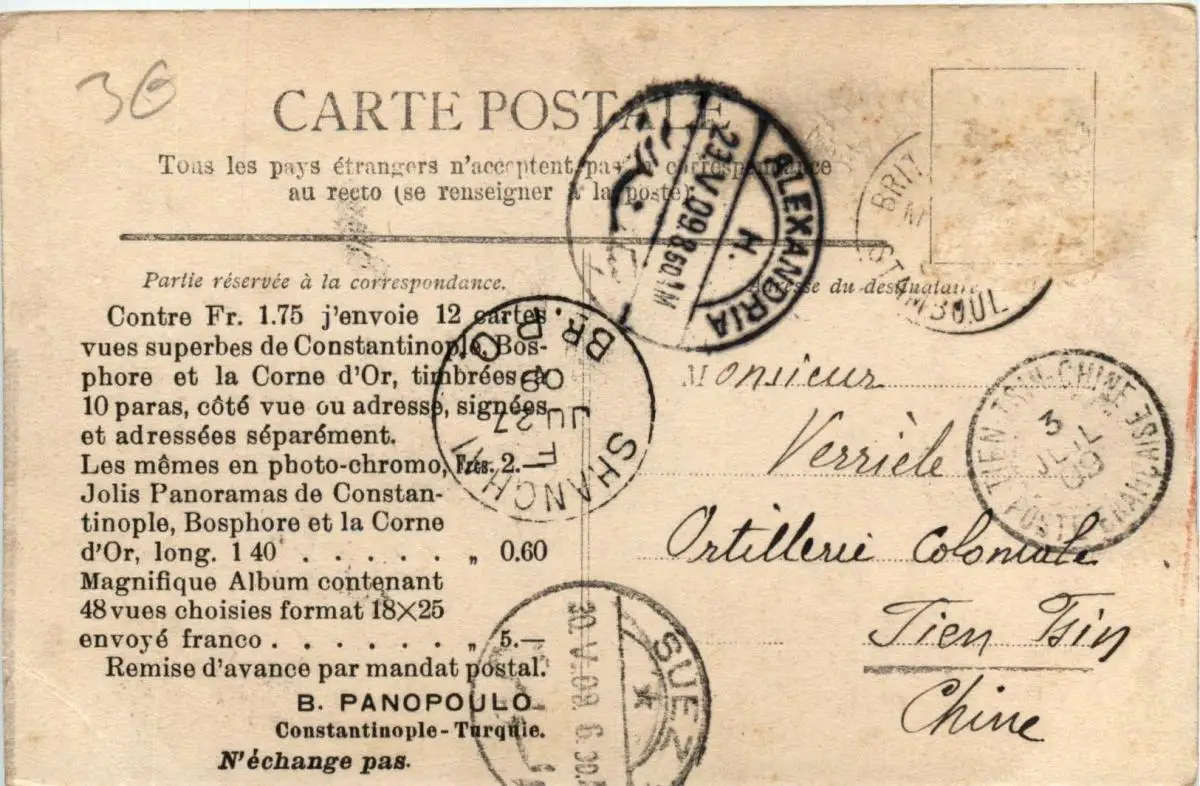 36
CARTE POSTALE
Tous les pays étrangers n'acceptent pas la correspondance
au recto (se renseigner à la poste)
Partie réservée à la correspondance.
Contre Fr. 1.75 j'envoie 12 cartes
vues superbes de Constantinople, Bos-
phore et la Corne d'Or, timbrées à
10 paras, côté vue ou adresse, signées
et adressées séparément.
Les mêmes en photo-chromo, Frcs. 2.—
Jolis Panoramas de Constan-
tinople, Bosphore et la Corne
d'Or, long. 1 40 . . . . . „ 0.60
Magnifique Album contenant
48 vues choisies format 18×25
envoyé franco . . . . . . . „ 5.—
Remise d'avance par mandat postal.
B. PANOPOULO
Constantinople - Turquie.
N'échange pas.
ALEXANDRIA
H.
23.V.09.8
BRIT
STAMBOUL
Adresse du destinataire
Monsieur
Verrièle
Artillerie Coloniale
Tien Tsin
Chine
TIEN-TSIN-CHINE
POSTE FRANÇAISE
3
JUIL
09
SHANGHAI
BR. P.O.
JU 27
09
SUEZ
30.V.09.6 30